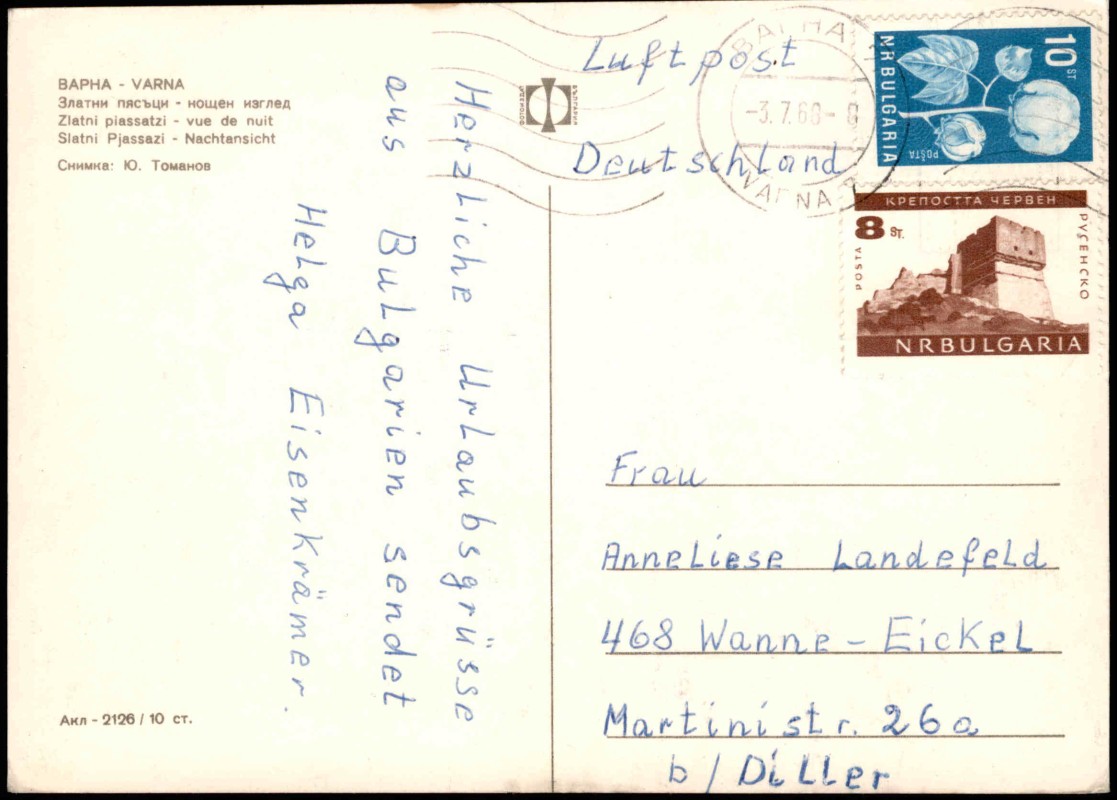 ВАРНА - VARNA
Златни пясъци - нощен изглед
Zlatni piassatzi - vue de nuit
Slatni Pjassazi - Nachtansicht
Снимка: Ю. Томанов
Herzliche Urlaubsgrüsse
aus Bulgarien sendet
Helga Eisenkrämer.
Акл - 2126 / 10 ст.
Luftpost
Deutschland
ВАРНА
-3.7.68-8
VARNA
10 ST
NRBULGARIA
POŠTA
КРЕПОСТТА ЧЕРВЕН
8 ST.
POŠTA
РУСЕНСКО
NRBULGARIA
Frau
Anneliese Landefeld
468 Wanne - Eickel
Martinistr. 26a
b / Diller